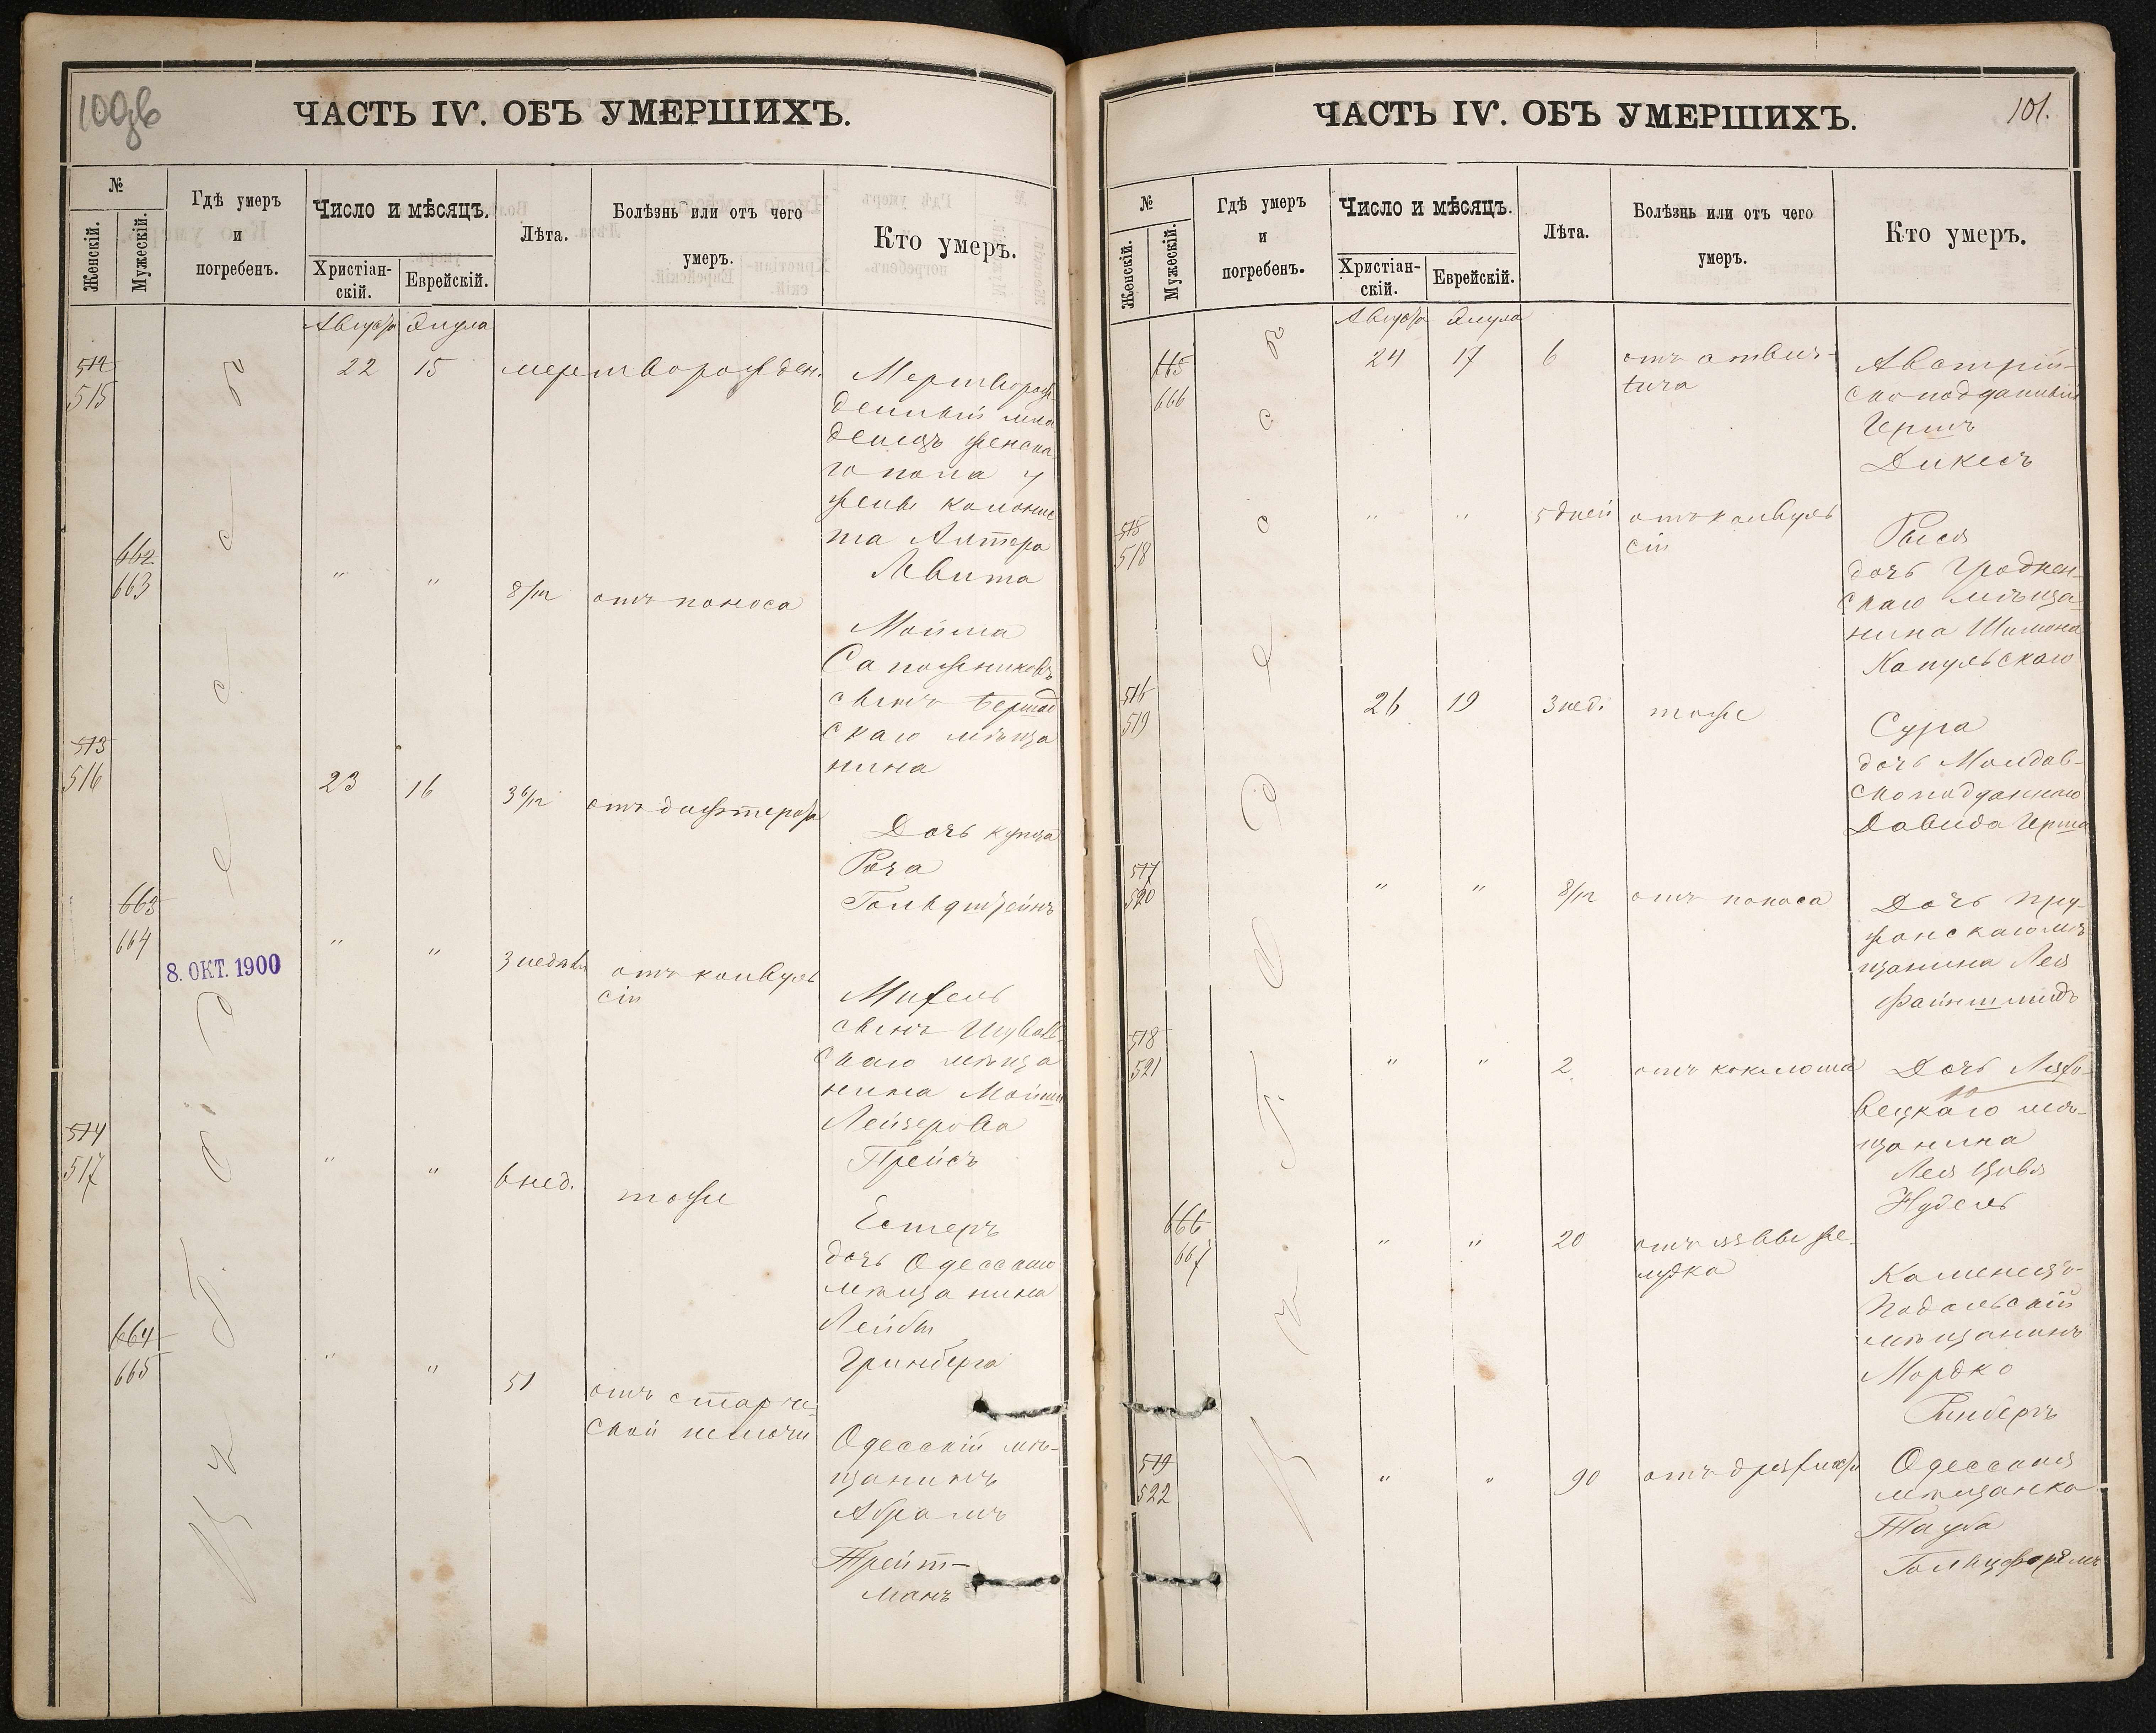 100об
ЧАСТЬ IV. ОБЪ УМЕРШИХЪ.
№
Женскій.
Мужескій.
Гдѣ умеръ
и
погребенъ.
Число и мѣсяцъ.
Христіан-
скій.
Еврейскій.
Лѣта.
Болѣзнь или отъ чего
умеръ.
Кто умеръ.
Августа Элула
въ г. Одессѣ
8. ОКТ. 1900
512
515
22 15 мертворожден.
Мертворож-
денный мла
денецъ женска
го пола у
жены колонис
та Алтера
Левита
662
663
" " 8/12 отъ поноса
Мойша
Сапожниковъ
сынъ Бершад
скаго мѣща
нина
513
516
23 16 3 6/12 отъ дифтерита
Дочь купца
Роза
Гольдштейнъ
663
664
" " 3 недѣли отъ конвуль
сіи
Михель
сынъ
скаго мѣща
нина Мойши
Лейзерова
Прейсъ
514
517
" " 6 нед. тоже
Естеръ
дочь Одесскаго
мѣщанина
Лейбы
Гринберга
664
665
" " 51 отъ старче-
ской немочи
Одесскій мѣ-
щанинъ
Абрамъ
Трейт-
манъ
ЧАСТЬ IV. ОБЪ УМЕРШИХЪ.
101.
№
Женскій.
Мужескій.
Гдѣ умеръ
и
погребенъ.
Число и мѣсяцъ.
Христіан-
скій.
Еврейскій.
Лѣта.
Болѣзнь или отъ чего
умеръ.
Кто умеръ.
Августа Элула
въ г. Одессѣ
665
666
24 17 6 отъ
Австрій-
скоподданный
Гершъ
Дикесъ
515
518
" " 5 дней отъ конвуль
сіи
Рыся
дочь Гроднен-
скаго мѣща-
нина Шимона
Капульскаго
516
519
26 19 3 нед. тоже
Сура
дочь Молдав-
скоподданнаго
Давида Герша
517
520
" " 8/12 отъ поноса
Дочь Пру-
жанскаго мѣ
щанина Лея
Файншмидъ
518
521
" " 2 отъ коклюша
Дочь Ляхо-
вецкаго мѣ-
щанина
Лея Цивя
Нудель
666
667
" " 20 отъ язвы же-
лудка
Каменецъ-
Подольскій
мѣщанинъ
Мордко
Гинбергъ
519
522
" " 90 отъ дряхлости
Одесская
мѣщанка
Тауба